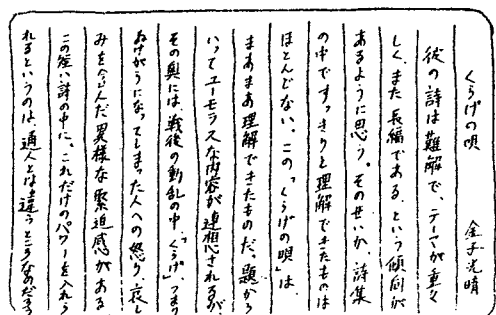 くらげの唄
金子光晴
彼の詩は難解で、テーマが重々
しく、また長編である、という傾向が
あるように思う。そのせいか、詩集
の中ですっきりと理解できたものは
ほとんどない。この「くらげの唄」は
まあまあ理解できたものだ。題から
いってユーモラスな内容が連想されるが、
その奥には、戦後の動乱の中、「くらげ」、つまり
ぬけがらになってしまった人への怒り、哀し
みを含んだ異様な緊迫感がある。
この短い詩の中に、これだけのパワーを入れら
れるというのは、通人とは違うところなのだろう